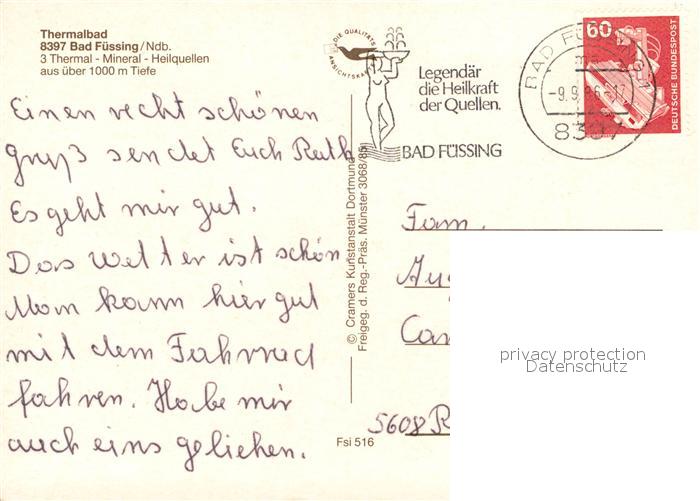 Thermalbad
8397 Bad Füssing/Ndb.
3 Thermal - Mineral - Heilquellen
aus über 1000 m Tiefe
Einen recht schönen
Gruß sendet Euch Ruth
Es geht mir gut.
Das Wetter ist schön
Man kann hier gut
mit dem Fahrrad
fahren. Habe mir
auch eins geliehen.
Fsi 516
© Cramers Kunstanstalt Dortmund
Freigeg. d. Reg.-Präs. Münster 3068/85
DIE QUALITÄTS
ANSICHTSKARTE
Legendär
die Heilkraft
der Quellen.
BAD FÜSSING
BAD FÜSSING 1
-9.9.86-17
8397
60
DEUTSCHE BUNDESPOST
Fam.
5608 R
privacy protection
Datenschutz